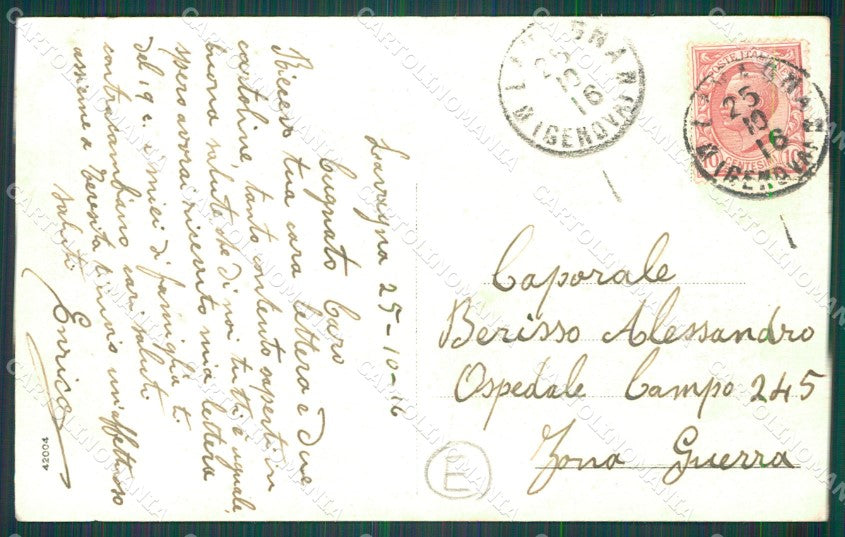 Lavagna 25-10-16
Cugnato Caro
Ricevo tua cara lettera e due
cartoline, tanto contento saperti in
buona salute che di noi tutti è uguale,
spero avrai ricevuto mia lettera
del 19 c. i miei di famiglia ti
contracambiano cari saluti
assieme a Teresita t'invio un affettuoso
saluti
Enrico
42004
LAVAGNA
25
10
16
(GENOVA)
POSTE ITALIANE
CENTESIMI 10
LAVAGNA
25
10
16
(GENOVA)
Caporale
Berisso Alessandro
Ospedale Campo 245
Zona Guerra
E
CARTOLINOMANIA